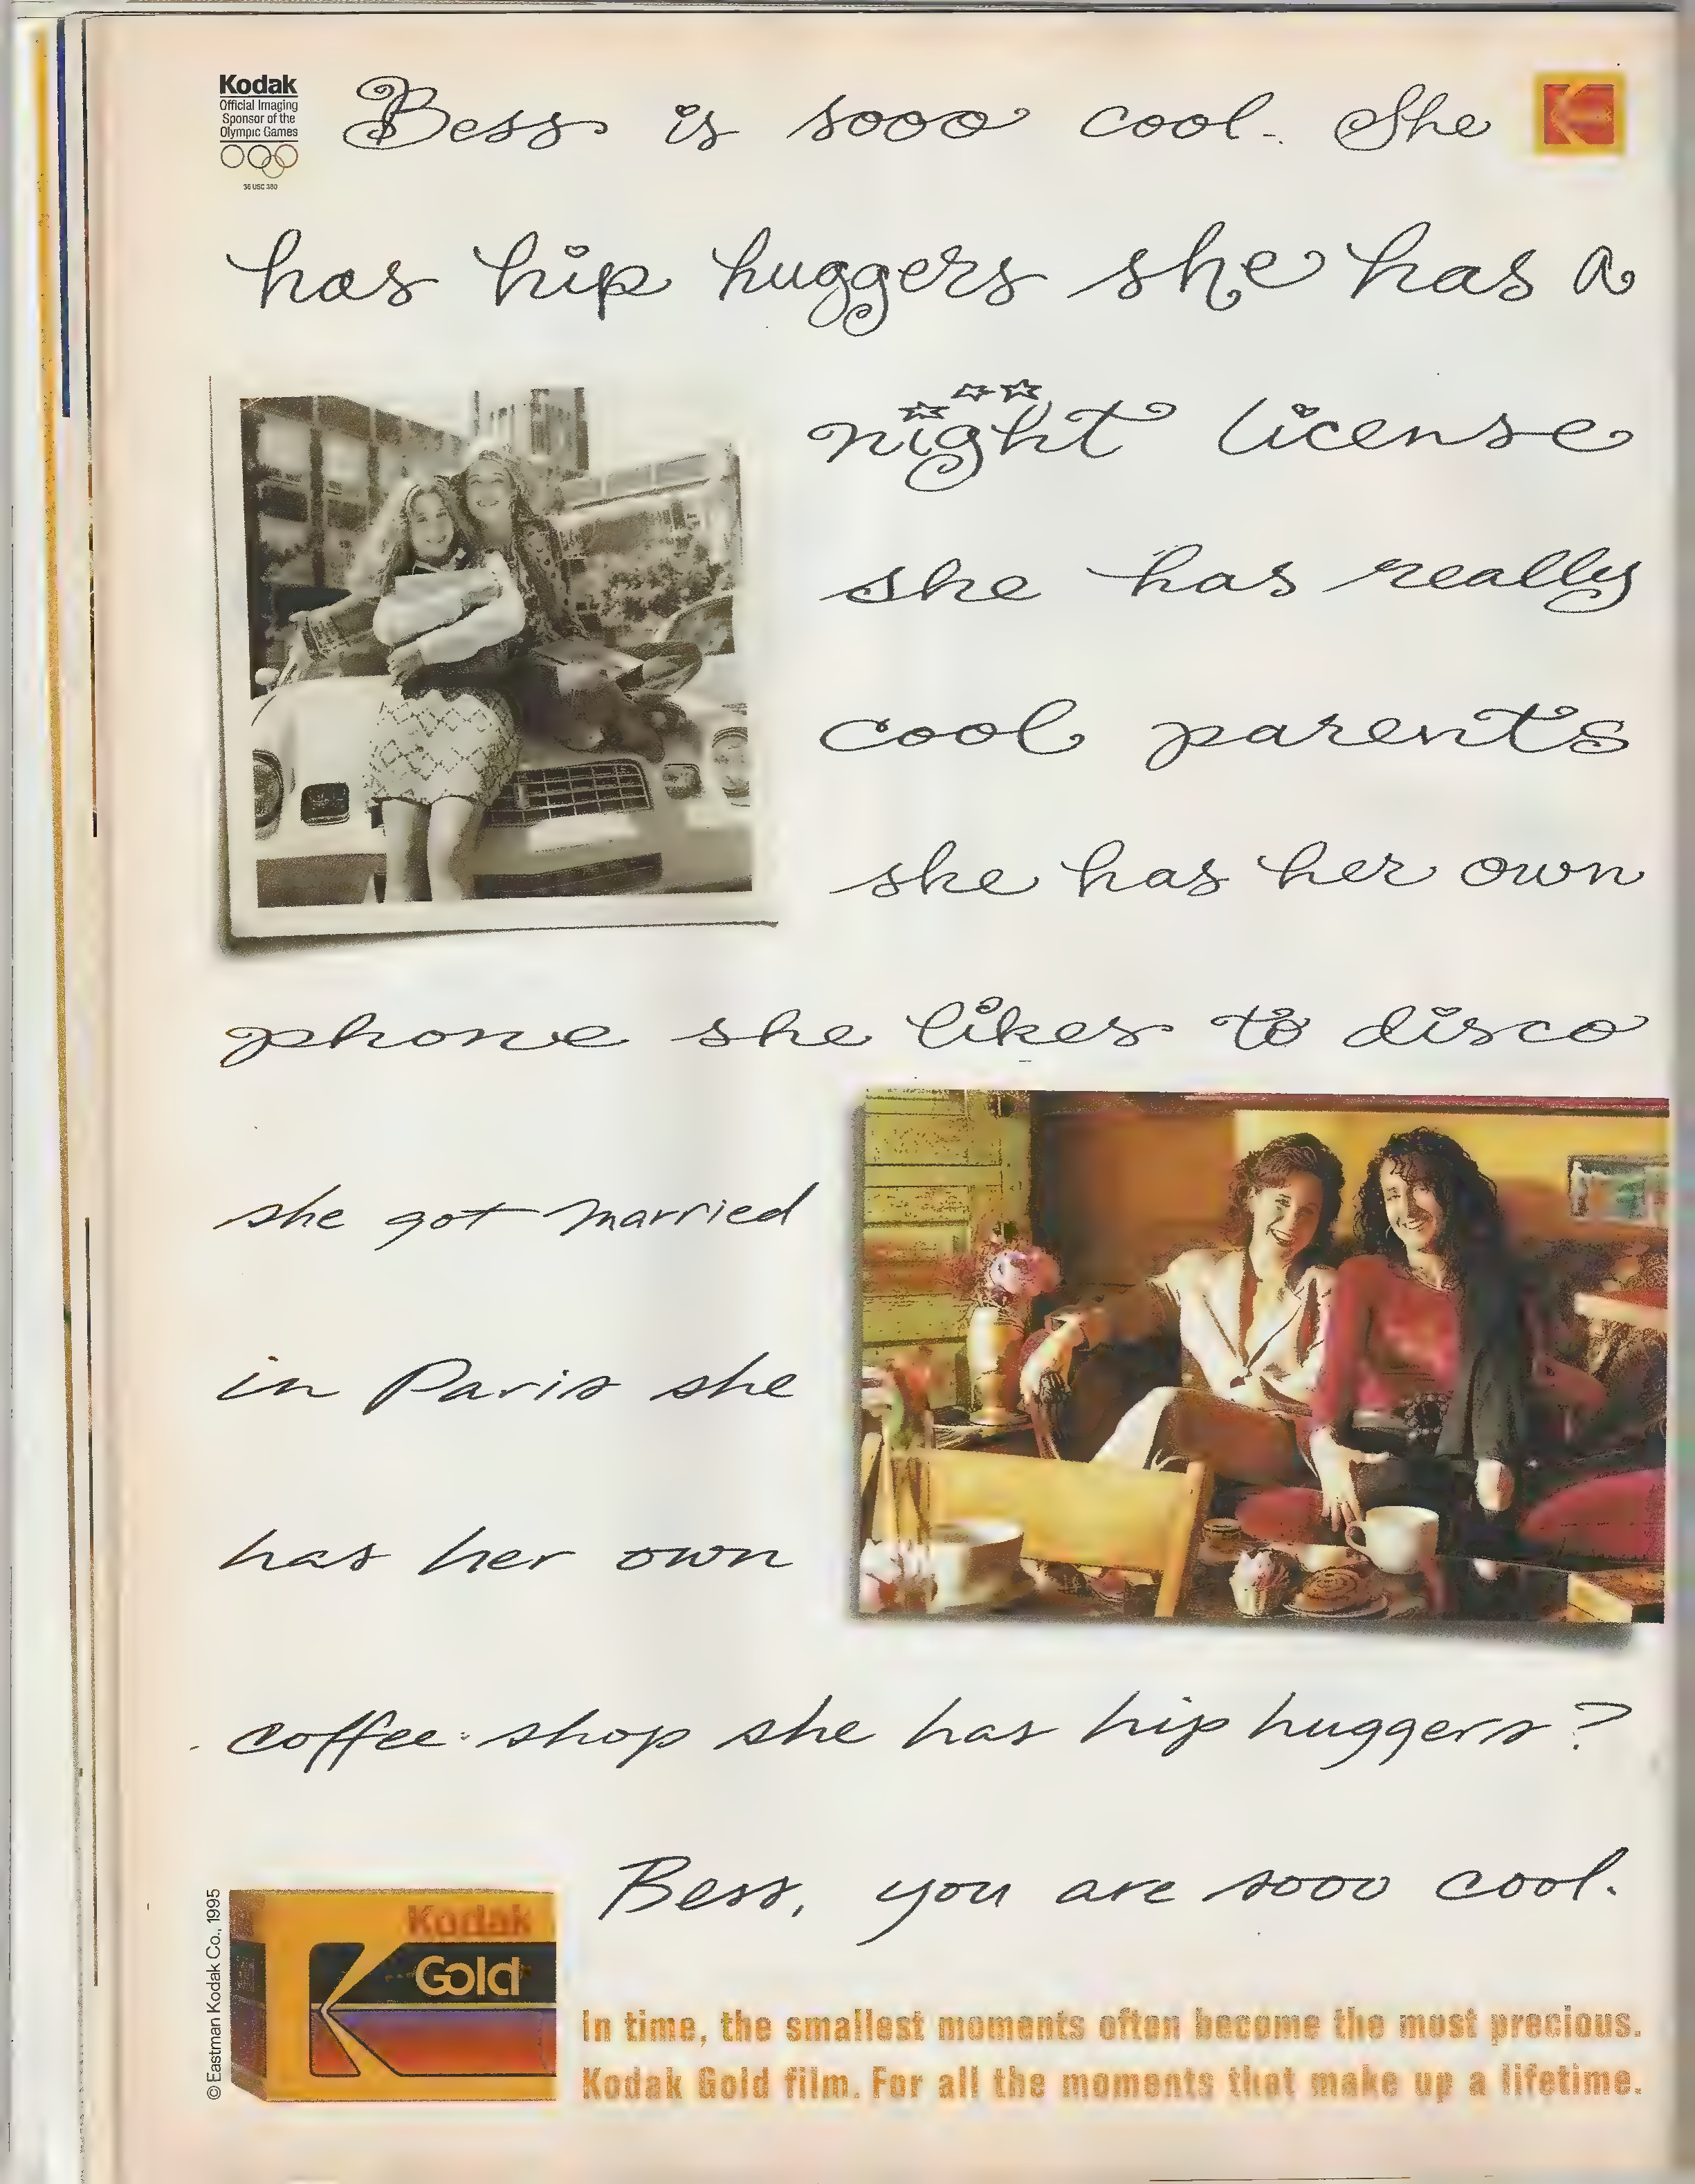 Kodak
Official Imaging
Sponsor of the
Olympic Games
36 USC 380
Bess is sooo cool. She
has hip huggers she has a
night license
she has really
cool parents
she has her own
phone she likes to disco
she got married
in Paris she
has her own
coffee shop she has hip huggers?
Bess, you are sooo cool.
© Eastman Kodak Co., 1995
Kodak
Gold
In time, the smallest moments often become the most precious.
Kodak Gold film. For all the moments that make up a lifetime.